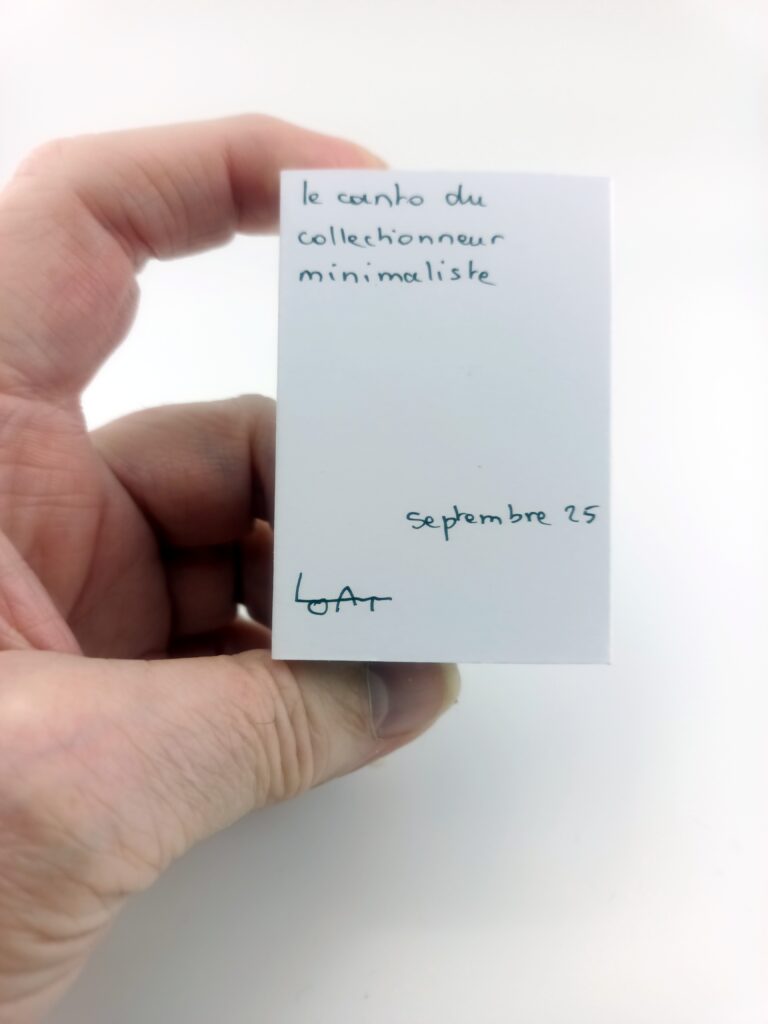 le canto du
collectionneur
minimaliste
septembre 25
LOAT